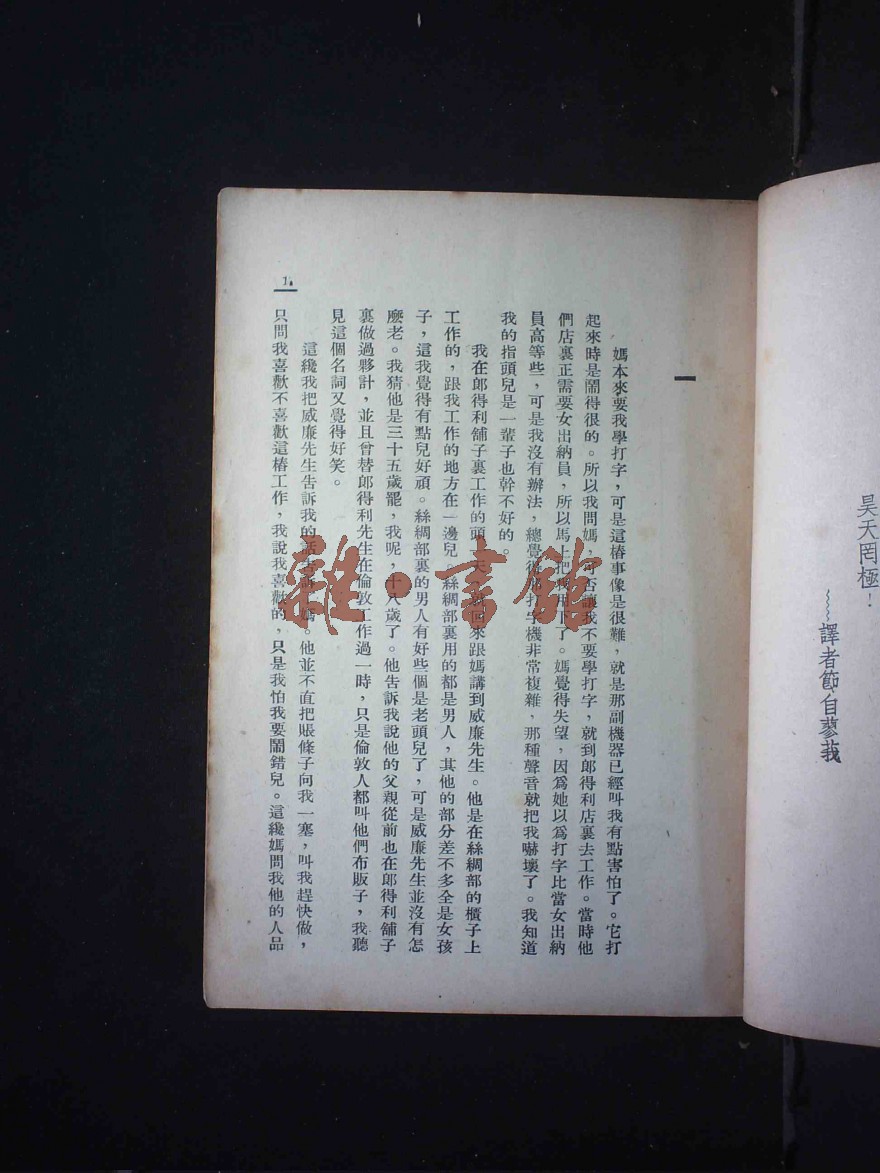 昊天罔極！
～～～譯者節自蓼莪
一
媽本來要我學打字，可是這樁事像是很難，就是那副機器已經叫我有點害怕了。它打
起來時是鬧得很的。所以我問媽，可否讓我不要學打字，就到郎得利店裏去工作。當時他
們店裏正需要女出納員，所以馬上把我用下了。媽覺得失望，因爲她以爲打字比當女出納
員高等些，可是我沒有辦法，總覺得那打字機非常複雜，那種聲音就把我嚇壞了。我知道
我的指頭兒是一輩子也幹不好的。
我在郎得利舖子裏工作的頭一天，就回來跟媽講到威廉先生。他是在絲綢部的櫃子上
工作的，跟我工作的地方在一邊兒。絲綢部裏用的都是男人，其他的部分差不多全是女孩
子，這我覺得有點兒好頑。絲綢部裏的男人有好些個是老頭兒了，可是威廉先生並沒有怎
麽老。我猜他是三十五歲罷，我呢，十八歲了。他告訴我說他的父親從前也在郎得利舖子
裏做過夥計，並且曾替郎得利先生在倫敦工作過一時，只是倫敦人都叫他們布販子，我聽
見這個名詞又覺得好笑。
這纔我把威廉先生告訴我的話告訴媽。他並不直把賬條子向我一塞，叫我趕快做，
只問我喜歡不喜歡這樁工作，我說我喜歡的，只是我怕我要鬧錯兒。這纔媽問我他的人品
1
雜·書館